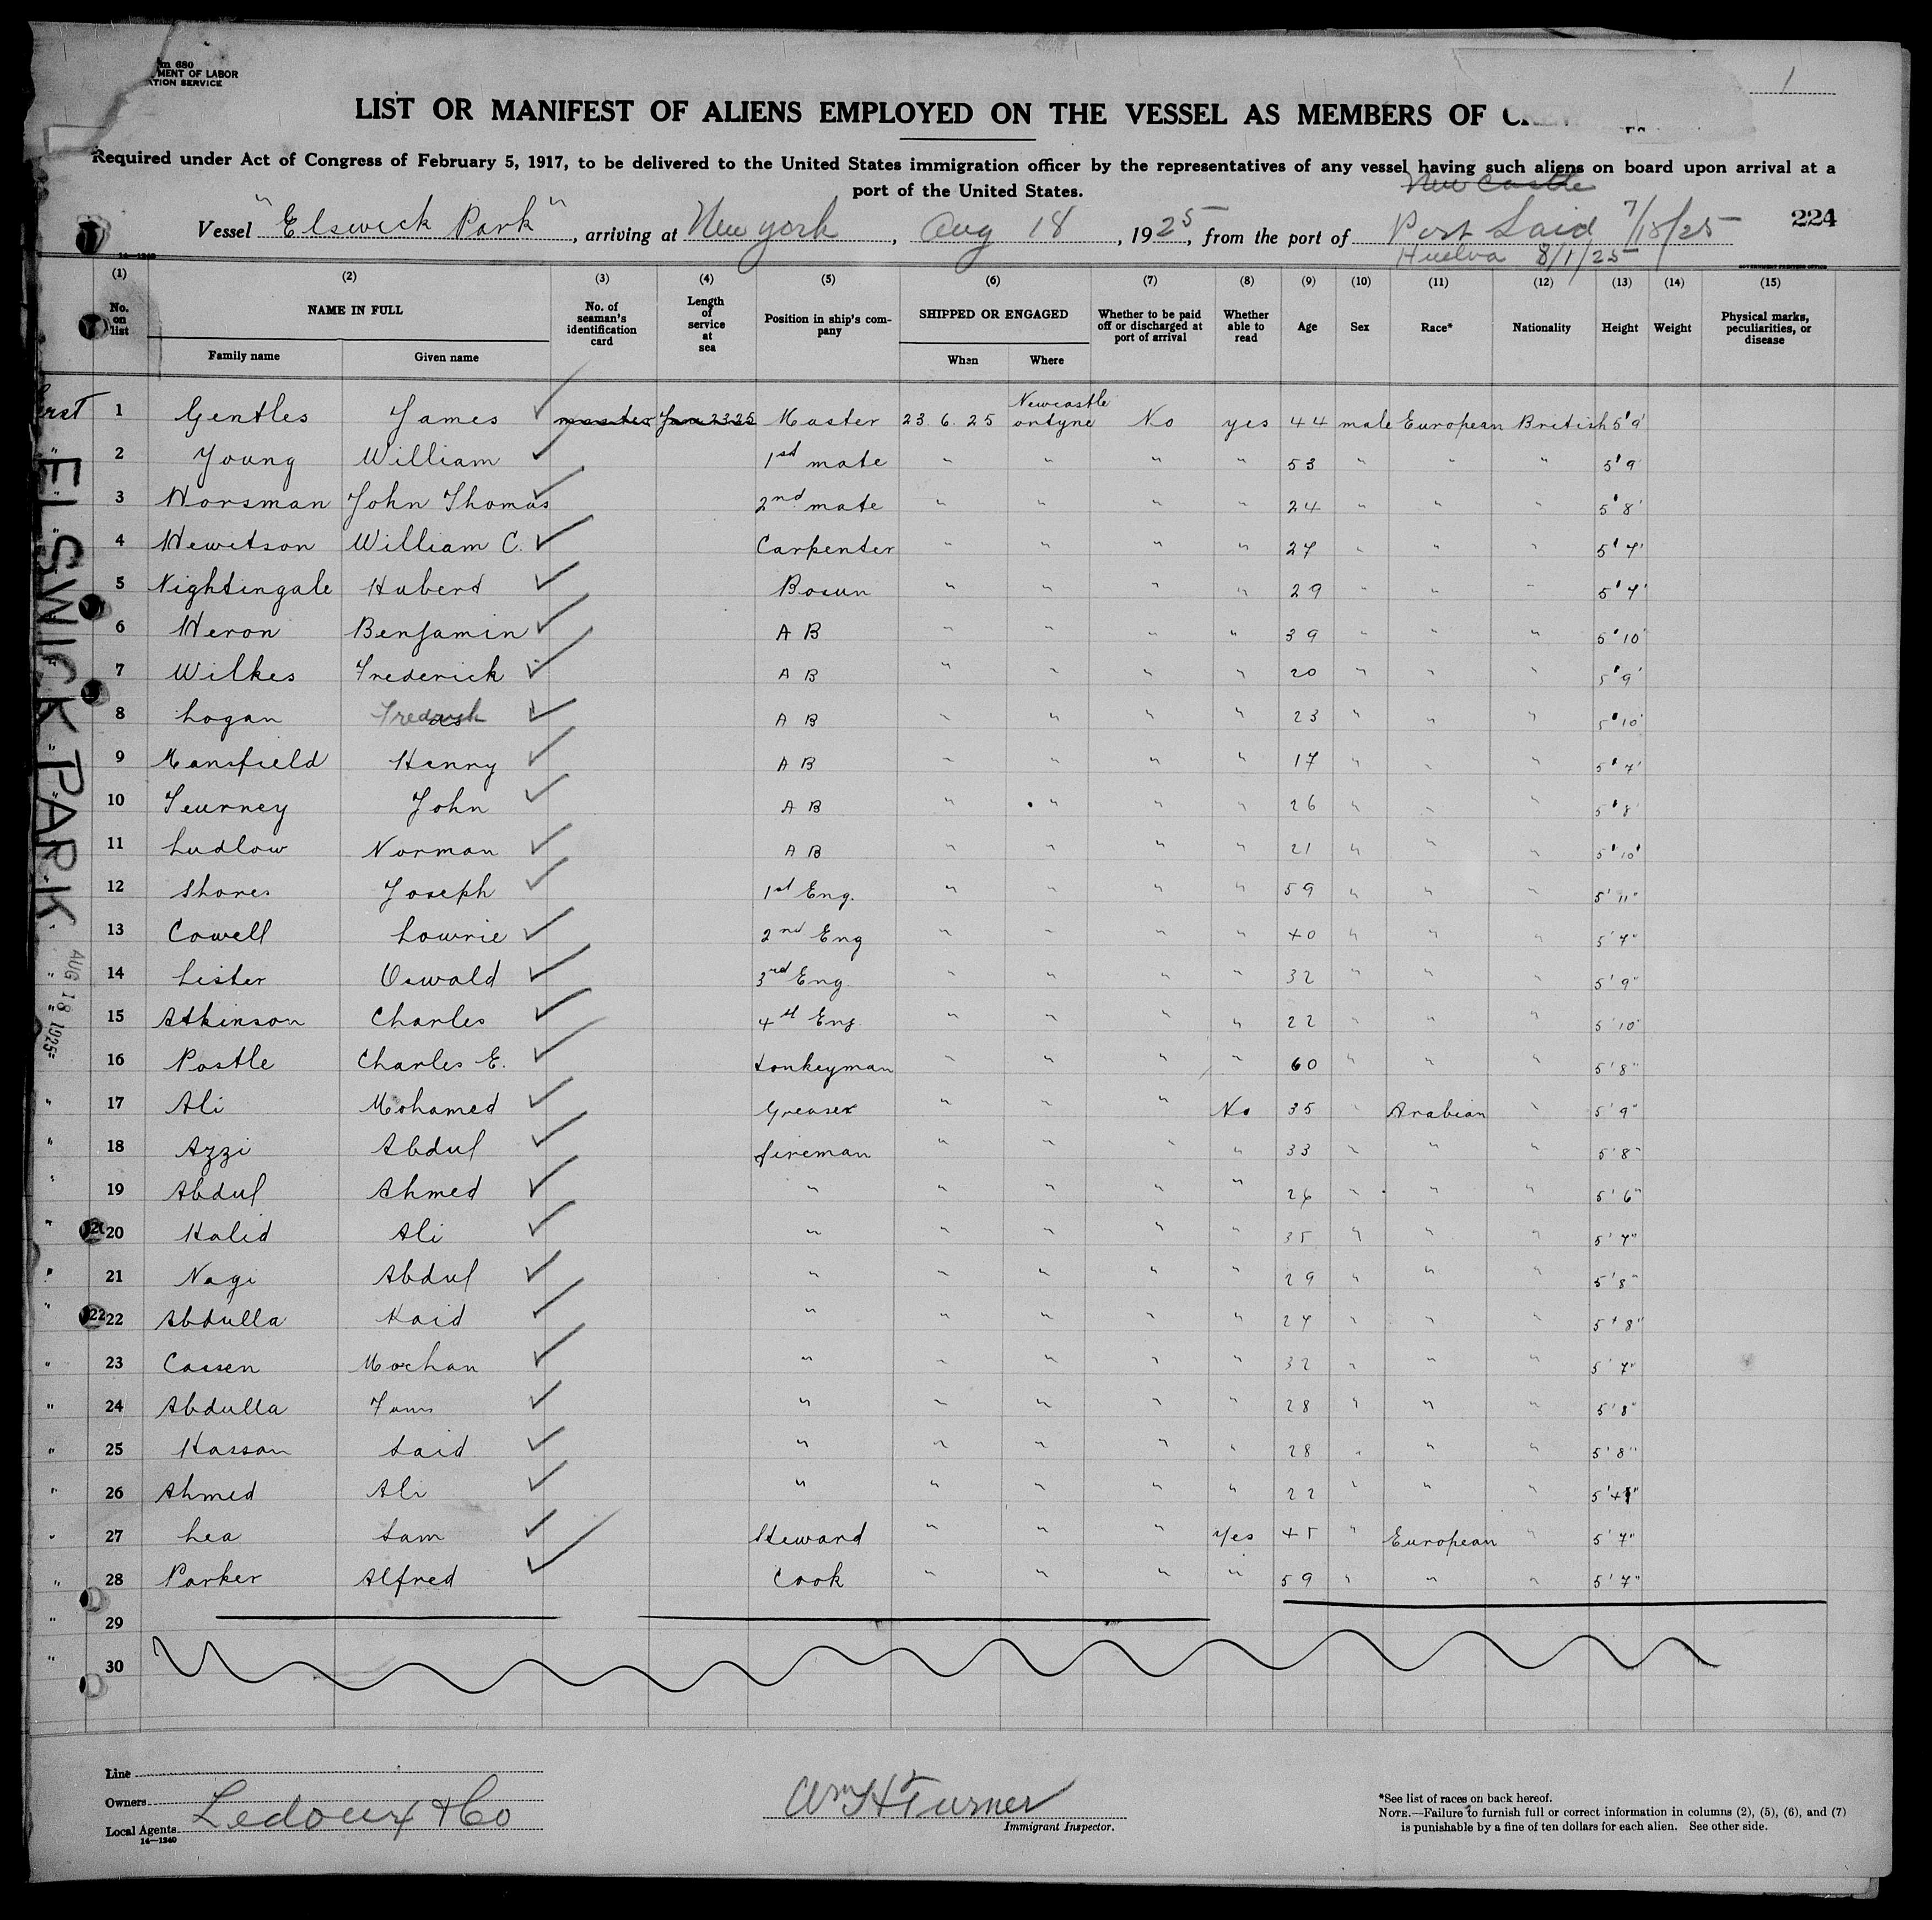 m 680
MENT OF LABOR
ATION SERVICE
1
LIST OR MANIFEST OF ALIENS EMPLOYED ON THE VESSEL AS MEMBERS OF CREW
Required under Act of Congress of February 5, 1917, to be delivered to the United States immigration officer by the representatives of any vessel having such aliens on board upon arrival at a
port of the United States.
New Castle
Vessel "Elswick Park", arriving at New York, Aug 18, 1925, from the port of Port Said 7/18/25
Huelva 8/1/25
224
14-1240
GOVERNMENT PRINTING OFFICE
(1) (2) (3) (4) (5) (6) (7) (8) (9) (10) (11) (12) (13) (14) (15)
No. on list NAME IN FULL No. of seaman's identification card Length of service at sea Position in ship's company SHIPPED OR ENGAGED Whether to be paid off or discharged at port of arrival Whether able to read Age Sex Race* Nationality Height Weight Physical marks, peculiarities, or disease
Family name Given name When Where
1 Gentles James master June 23 25 Master 23. 6. 25 Newcastle on tyne No yes 44 male European British 5' 9'
2 Young William 1st mate " " " " 53 " " " 5' 9
3 Horsman John Thomas 2nd mate " " " " 24 " " " 5' 8'
4 Hewitson William C. Carpenter " " " " 27 " " " 5' 7'
5 Nightingale Hubert Bosun " " " " 29 " " " 5' 7'
6 Heron Benjamin A B " " " " 39 " " " 5' 10'
7 Wilkes Frederick A B " " " " 20 " " " 5' 9'
8 Logan A B " " " " 23 " " " 5' 10'
9 Mansfield Henry A B " " " " 17 " " " 5' 7'
10 Teurney John A B " " " " 26 " " " 5' 8'
11 Ludlow Norman A B " " " " 21 " " " 5' 10'
12 Shores Joseph 1st Eng. " " " " 59 " " " 5' 11"
13 Cowell Lowrie 2nd Eng " " " " 40 " " " 5' 7"
14 Lister Oswald 3rd Eng. " " " " 32 " " " 5' 9"
15 Atkinson Charles 4th Eng. " " " " 22 " " " 5' 10"
16 Postle Charles E. Donkeyman " " " " 60 " " " 5' 8"
17 Ali Mohamed Greaser " " " No 35 " Arabian " 5' 9"
18 Azzi Abdul fireman " " " " 33 " " " 5' 8"
19 Abdul Ahmed " " " " " 26 " " " 5' 6"
20 Halid Ali " " " " " 35 " " " 5' 7"
21 Nagi Abdul " " " " " 29 " " " 5' 8"
22 Abdulla Kaid " " " " " 27 " " " 5' 8"
23 Cassen Mochan " " " " " 32 " " " 5' 7"
24 Abdulla " " " " " 28 " " " 5' 8"
25 Hassan Said " " " " " 28 " " " 5' 8"
26 Ahmed Ali " " " " " 22 " " "
27 Lea Sam Steward " " " Yes 45 " European " 5' 7"
28 Parker Alfred Cook " " " " 59 " " " 5' 7"
29
30
ELSWICK PARK
AUG 18 1925
Line
Owners
Local Agents Ledoux & Co
14-1240
Wm H Turner
Immigrant Inspector.
*See list of races on back hereof.
NOTE.—Failure to furnish full or correct information in columns (2), (5), (6), and (7)
is punishable by a fine of ten dollars for each alien. See other side.